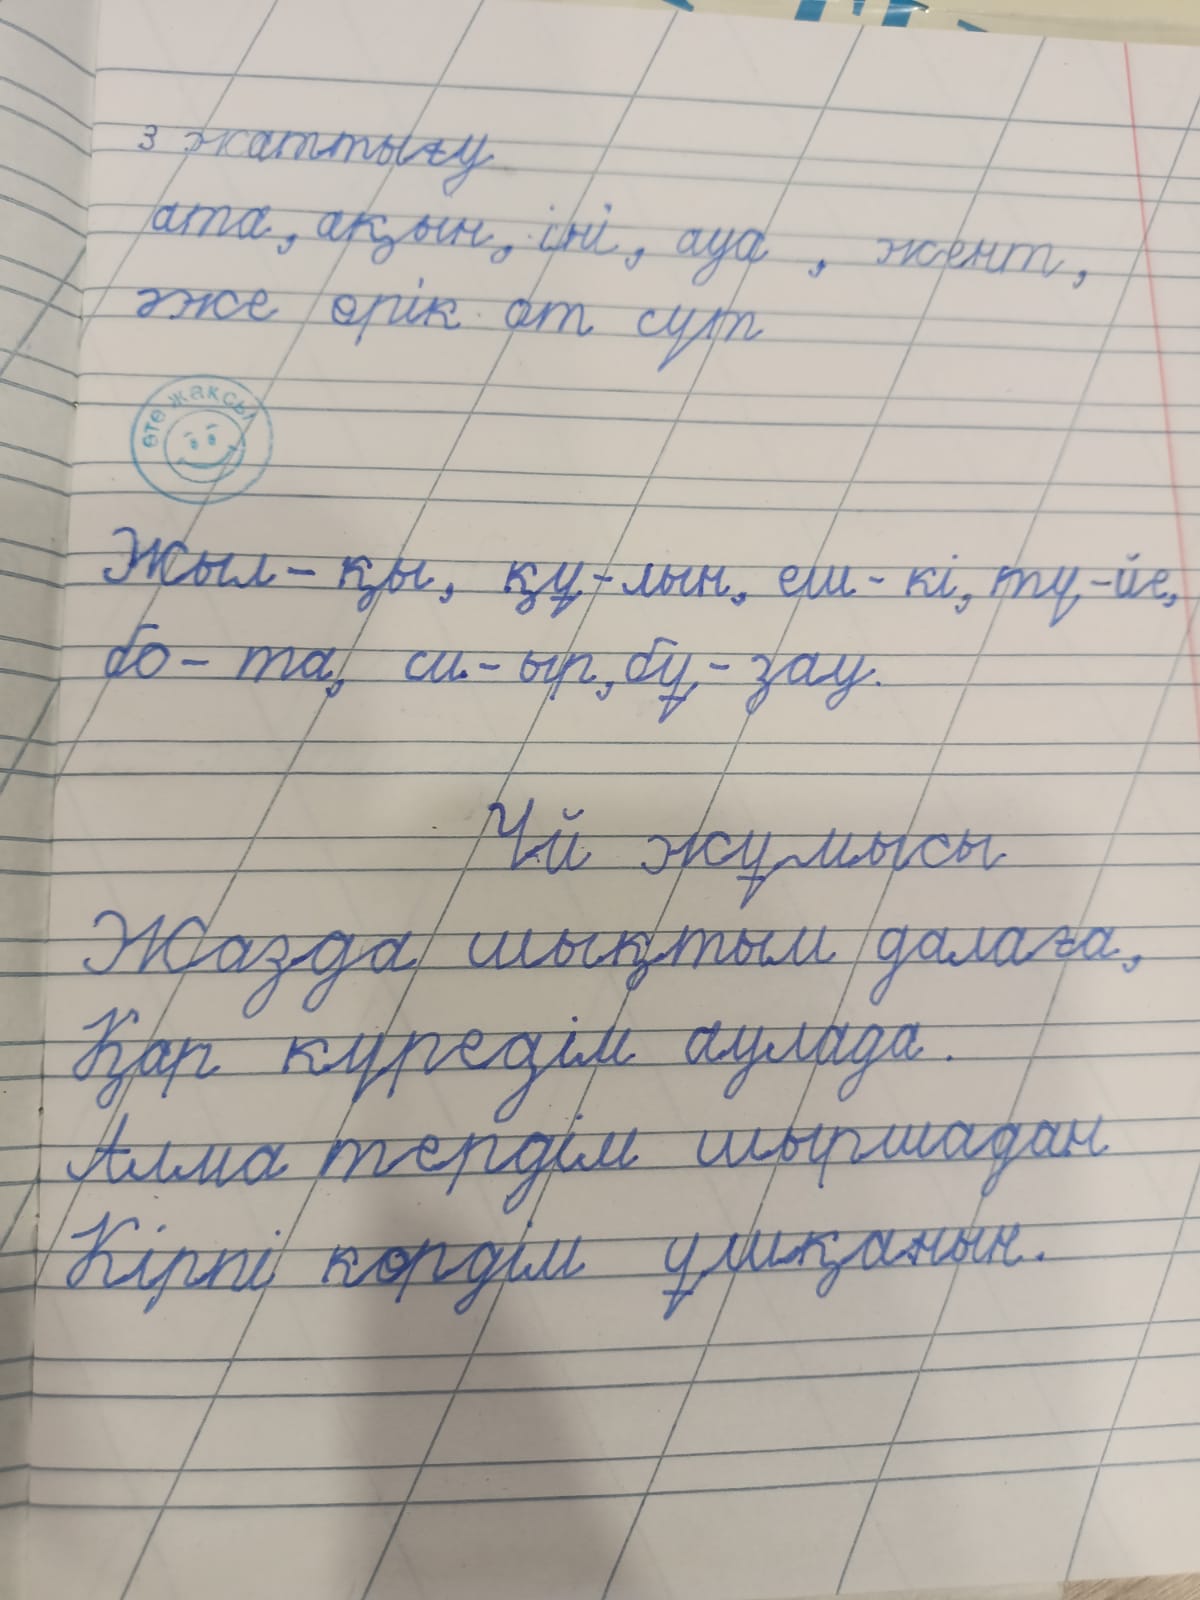 3 жаттығу
ата, ақын, іні, ауа, жент,
әже өрік от сүт
өте жақсы
Жыл-қы, құ-лын, еш-кі, тү-йе,
бо-та, си-ыр, бұ-зау.
Үй жұмысы
Жазда шықтым далаға,
Қар күредім аулада.
Алма тердім шыршадан
Кірпі көрдім ұшқанын.